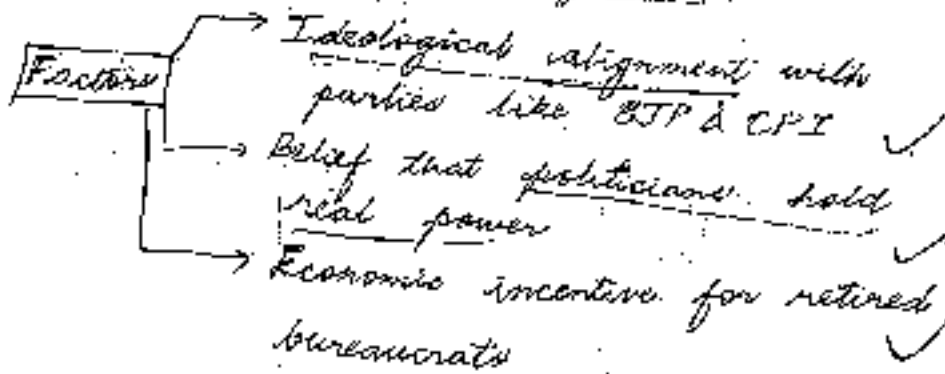 Factors
Ideological alignment with
parties like BJP & CPI
Belief that politicians hold
real power
Economic incentive for retired
bureaucrats